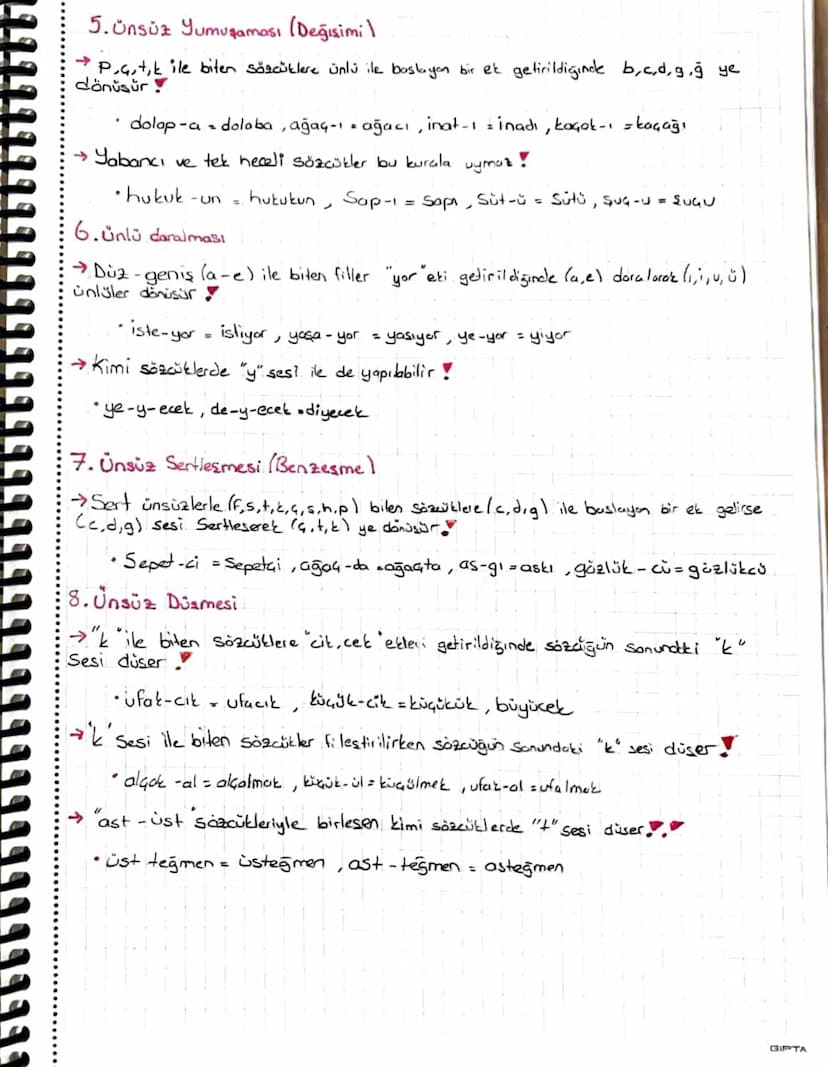 5. Ünsüz Yumuşaması (Değişimi)
→ P,ç,t,k ile biten sözcüklere ünlü ile başlayan bir ek getirildiğinde b,c,d,g,ğ ye
dönüşür!
• dolap-a = dolaba, ağaç-ı = ağacı, inat-ı = inadı, kaçak-ı = kaçağı
→ Yabancı ve tek heceli sözcükler bu kurala uymaz!
• hukuk-un = hukukun, Sap-ı = sapı, Süt-ü = Sütü, suç-u = suçu
6. Ünlü daralması
→ Düz-geniş (a-e) ile biten fiiller "yor" eki getirildiğinde (a,e) daralarak (ı,i,u,ü)
ünlüler dönüşür!
• iste-yor = istiyor, yaşa-yor = yaşıyor, ye-yor = yiyor
→ Kimi sözcüklerde "y" sesi ile de yapılabilir!
• ye-y-ecek, de-y-ecek = diyecek
7. Ünsüz Sertleşmesi (Benzeşme)
→ Sert ünsüzlerle (f,s,t,k,ç,ş,h,p) biten sözcüklere (c,d,g) ile başlayan bir ek gelirse
(c,d,g) sesi Sertleşerek (ç,t,k) ye dönüşür!
• Sepet-ci = Sepetçi, ağaç-da = ağaçta, as-gı = askı, gözlük-cü = gözlükcü
8. Ünsüz Düşmesi
→ "k" ile biten sözcüklere "cik, cek" ekleri getirildiğinde sözcüğün sonundaki "k"
Sesi düşer!
• ufak-cık = ufacık, küçük-cik = küçücük, büyücek
→ 'k' sesi ile biten sözcükler fiilestirilirken sözcüğün sonundaki "k" sesi düşer!
• alçak-al = alçalmak, küçük-ül = küçülmek, ufak-al = ufalmak
→ "ast-üst" sözcükleriyle birleşen kimi sözcüklerde "t" sesi düşer!!
• üst teğmen = üsteğmen, ast-teğmen = asteğmen
GIPTA